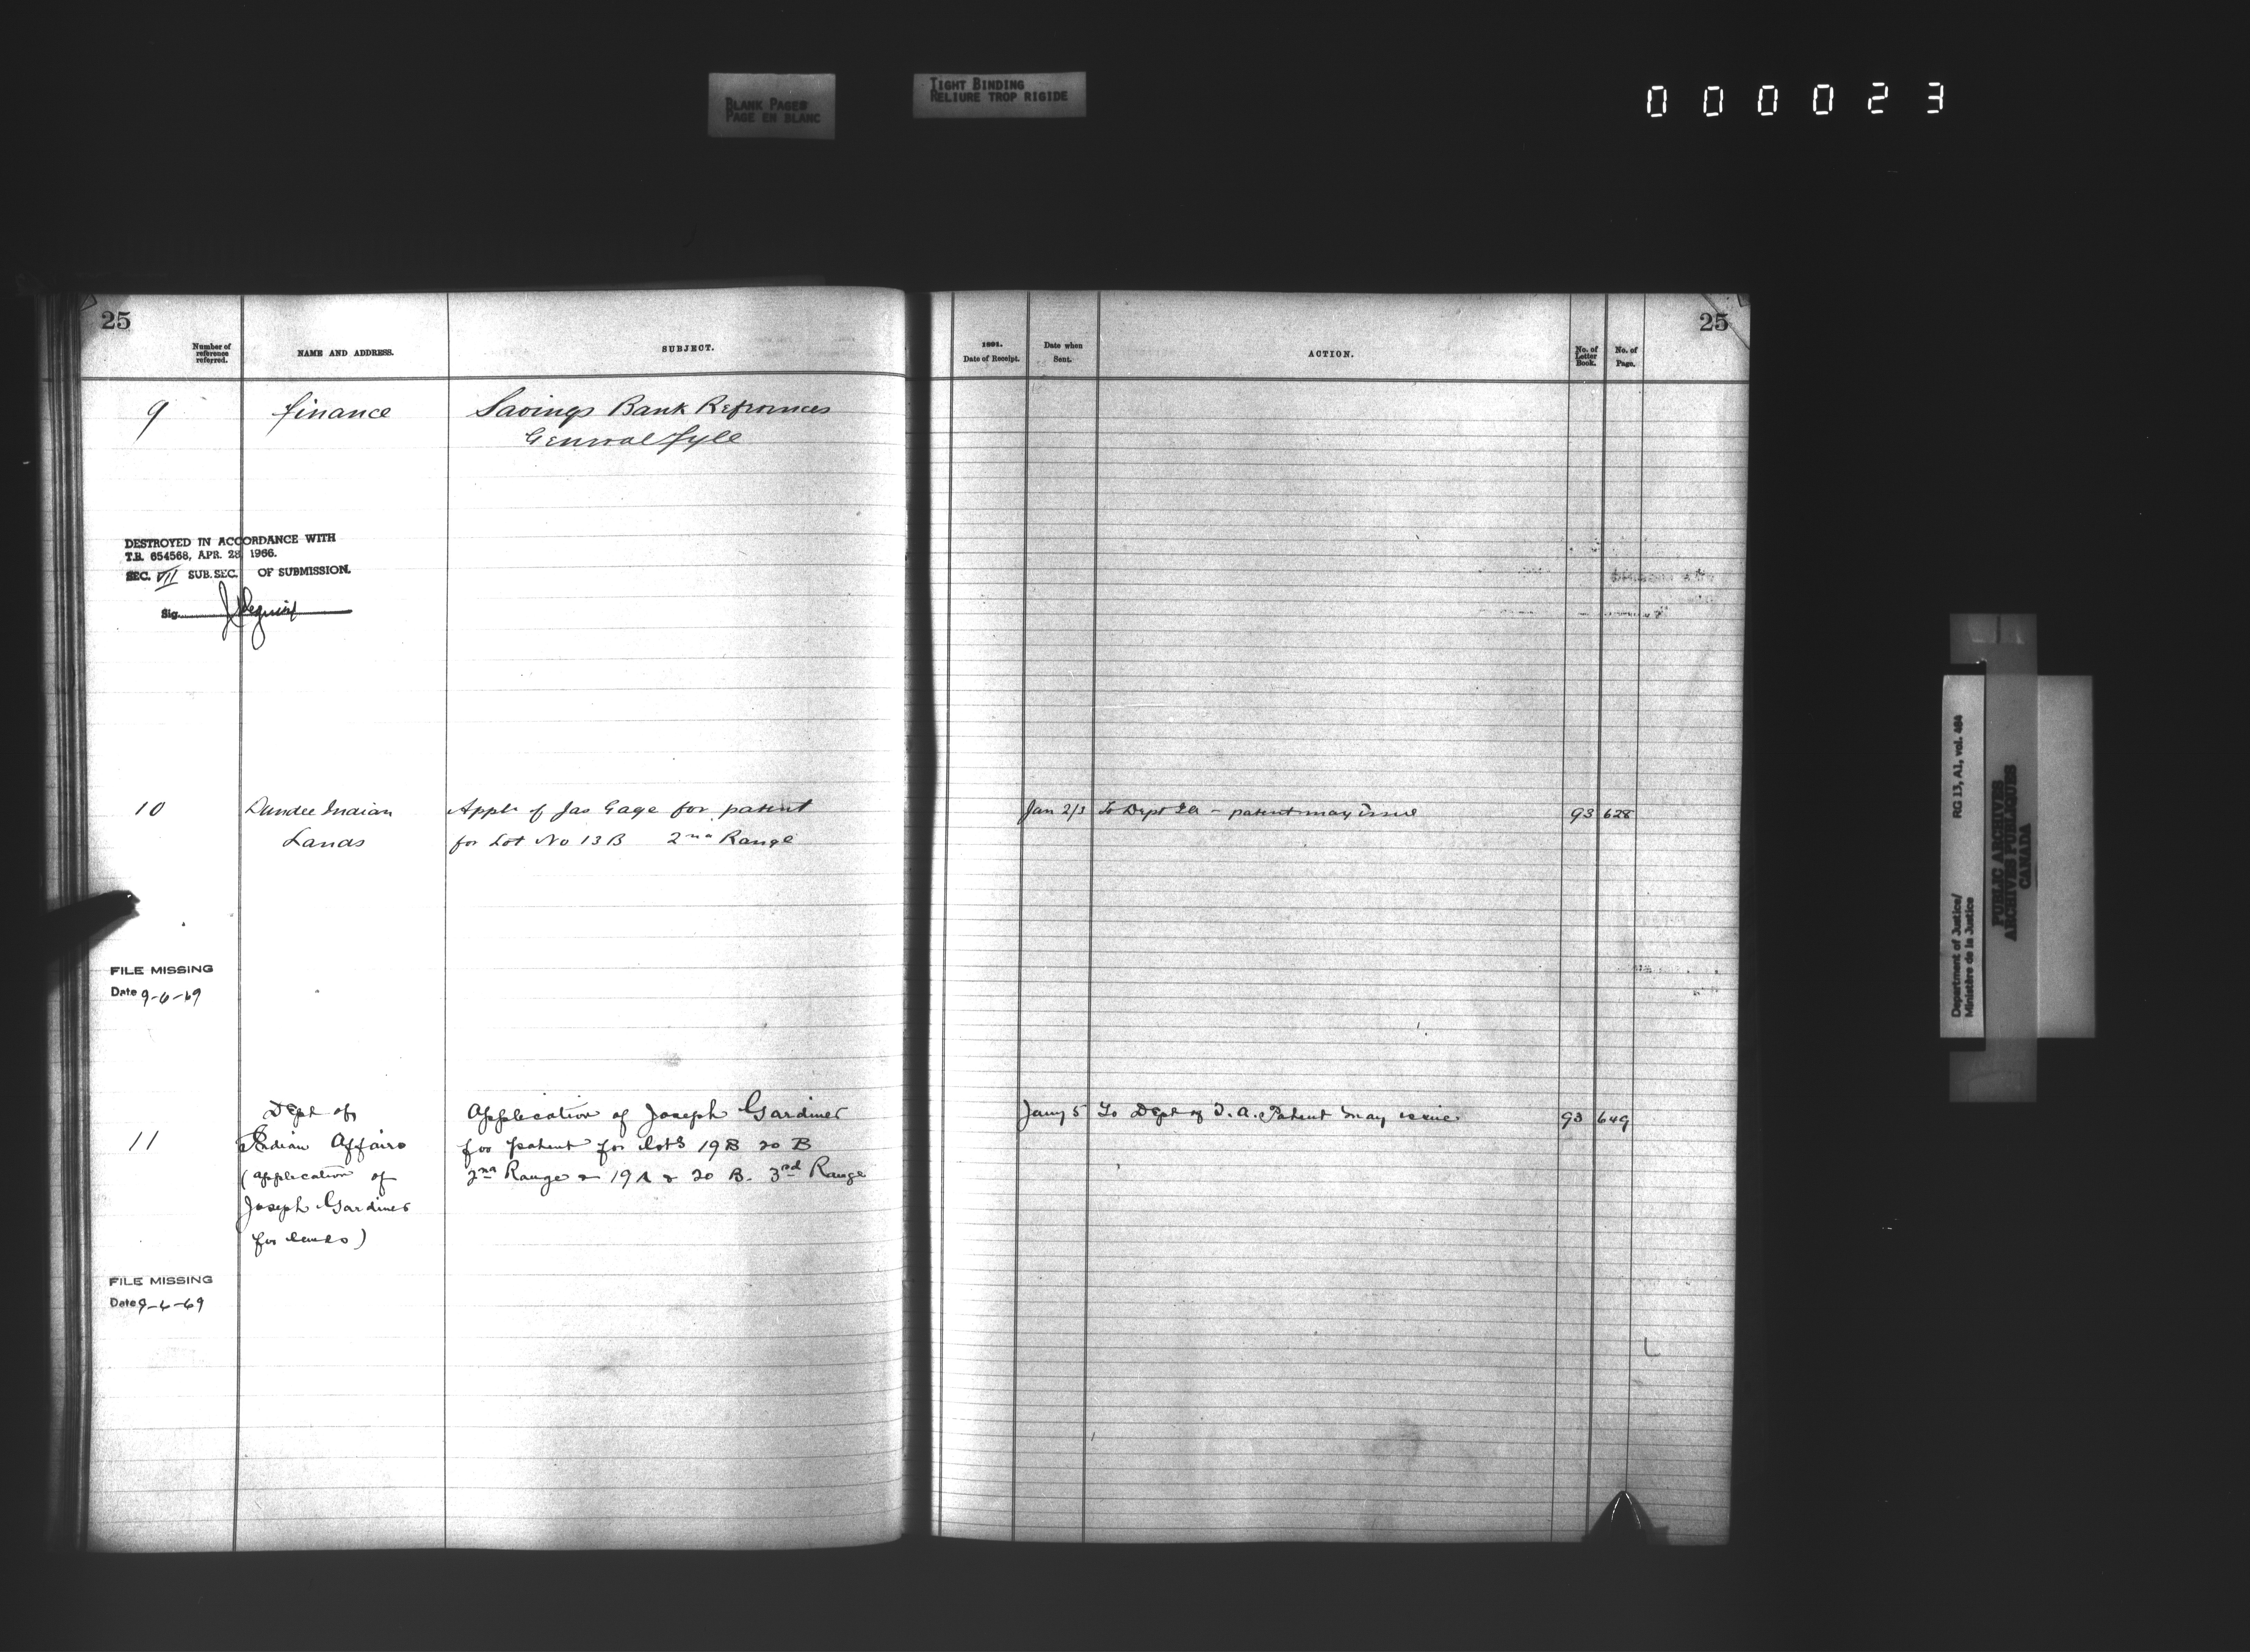 BLANK PAGES
PAGE EN BLANC
TIGHT BINDING
RELIURE TROP RIGIDE
0 0 0 0 2 3
25
Number of
reference
referred.
NAME AND ADDRESS.
SUBJECT.
9 Finance Savings Bank References
General fyle
DESTROYED IN ACCORDANCE WITH
T.B. 654568, APR. 28 1966.
SEC. VII SUB. SEC. OF SUBMISSION.
Sig.
10 Dundee Indian Appln of Jas Gage for patent
Lands for Lot No 13B 2nd Range
FILE MISSING
Date 9-6-69
Dept of Application of Joseph Gardiner
11 Indian Affairs for patent for lots 19B 20 B
(application of 2nd Range & 19A & 20 B. 3rd Range
Joseph Gardiner
for lands)
FILE MISSING
Date 9-6-69
25
1891.
Date of Receipt.
Date when
Sent.
ACTION.
No. of
Letter
Book.
No. of
Page.
Jan 2/3 To Dept IA - patent may issue 93 628
Jany 5 To Dept of I. A. Patent may issue 93 649
Department of Justice/ RG 13, A1, vol. 464
Ministère de la Justice
PUBLIC ARCHIVES
ARCHIVES PUBLIQUES
CANADA